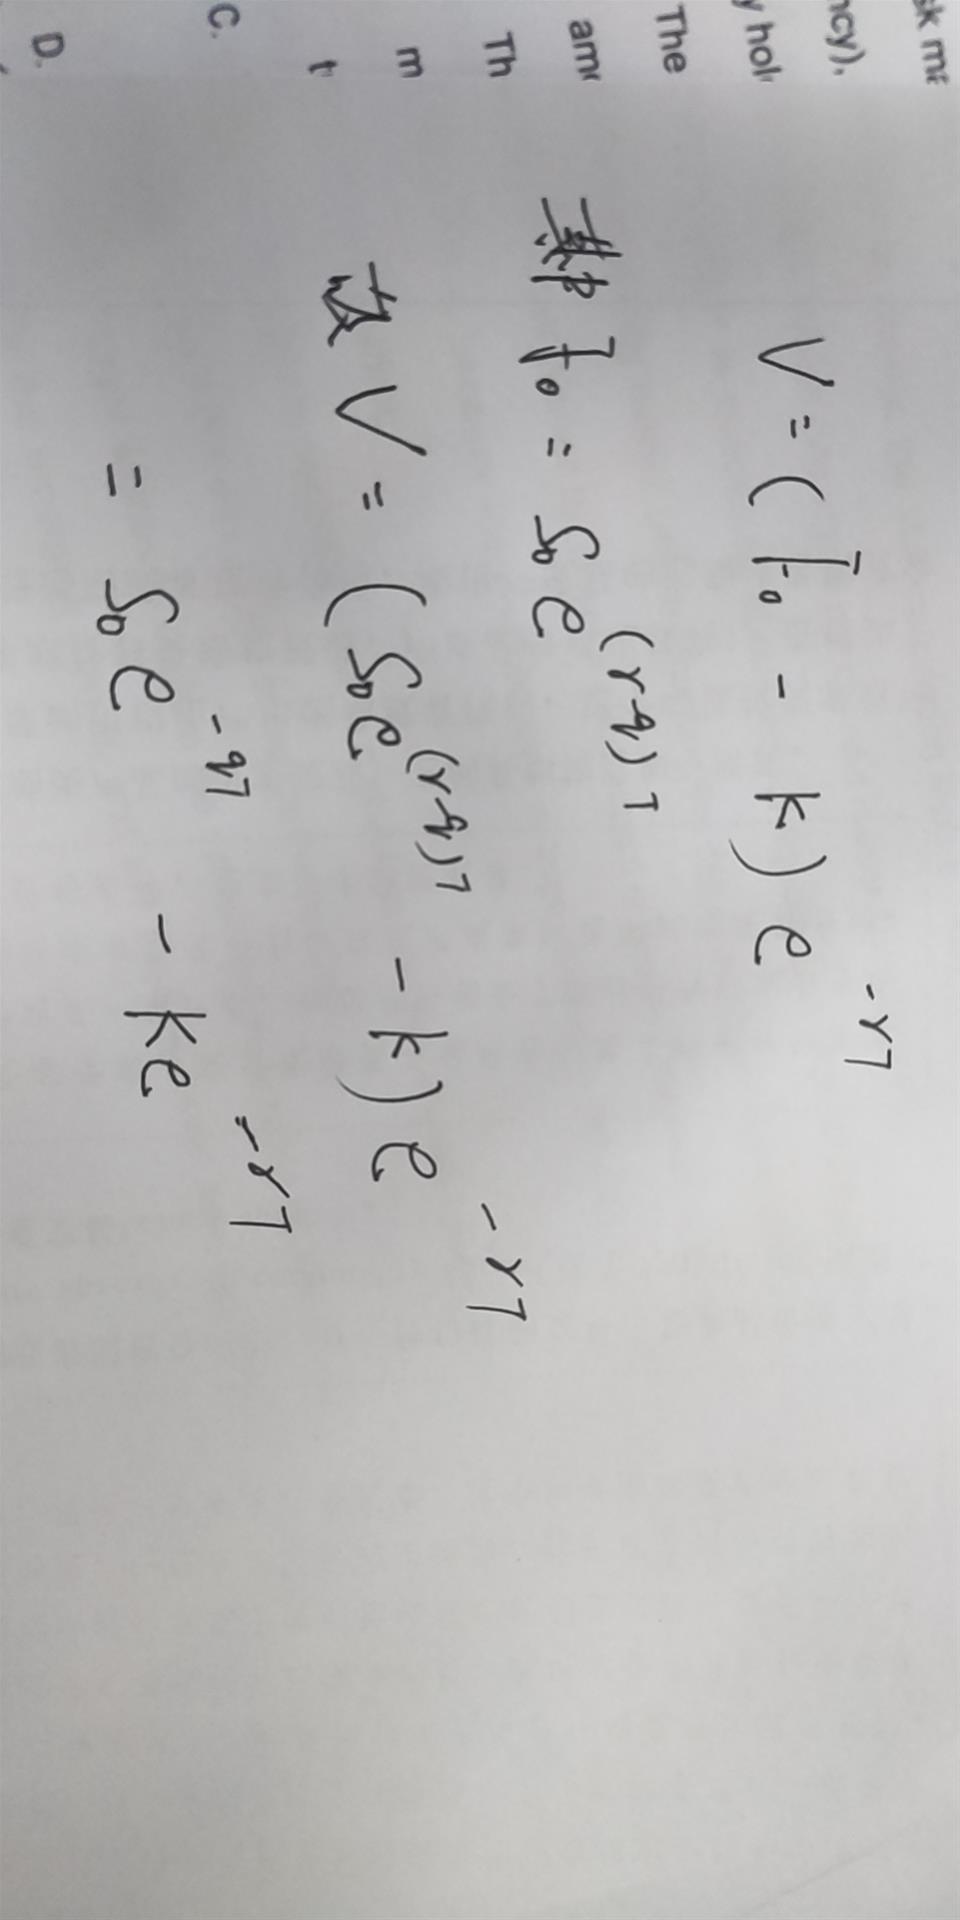 ncy).
y hol
The
Th
m
t
C.
D.
V = (F₀ - k) e^{-rT}
其中 F₀ = S₀ e^{(r-q)T}
故 V = (S₀ e^{(r-q)T} - k) e^{-rT}
= S₀ e^{-qT} - k e^{-rT}